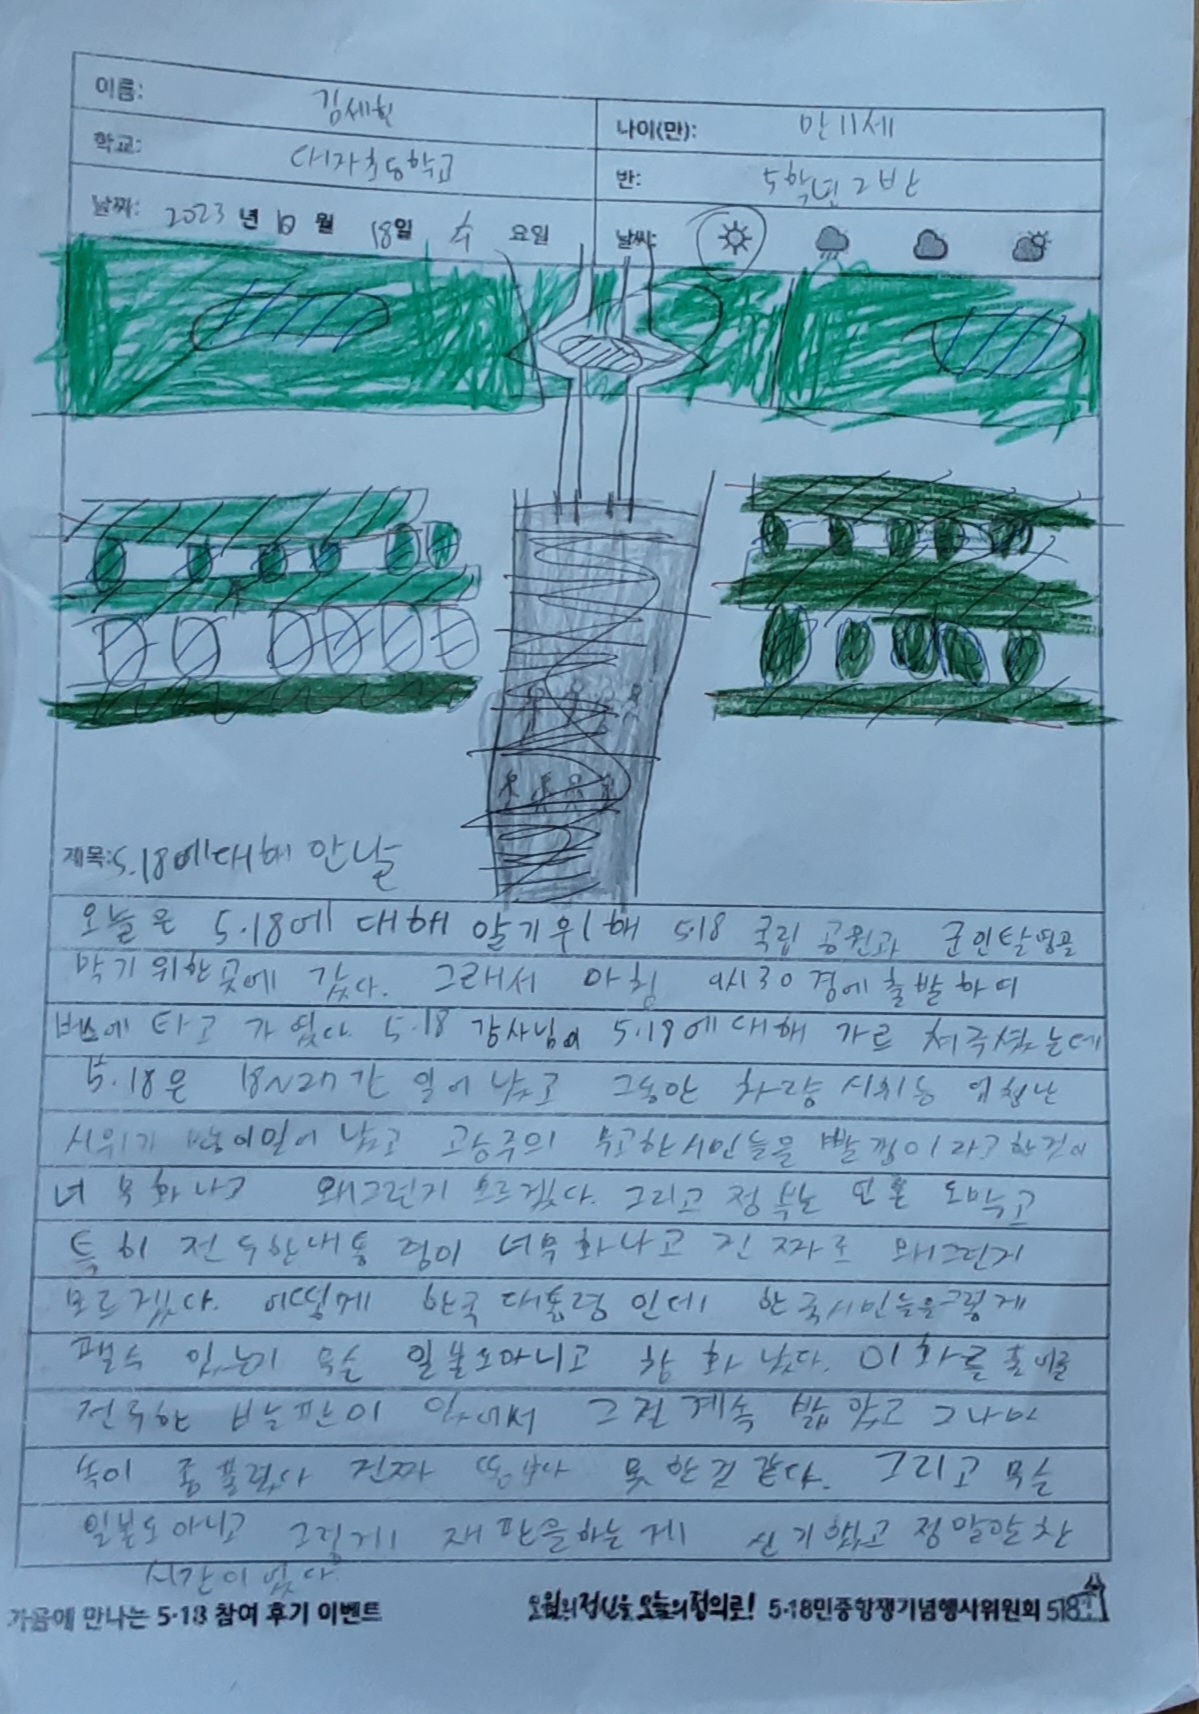 이름: 김세현
나이(만): 만 11세
학교: 대자초등학교
반: 5학년 2반
날짜: 2023 년 10 월 18일 수 요일
날씨:
제목: 5.18에대해 안날
오늘은 5.18에 대해 알기위해 5.18 국립 공원과 군인탈영을
막기 위한곳에 갔다. 그래서 아침 9시30 경에 출발하여
버스에 타고 가 었다. 5.18 강사님이 5.18에 대해 가르 쳐주셨는데
5.18은 18~27간 일어 났고 그동안 차량 시위등 엄청난
시위가 많이일어 났고 광주의 무고한시민들을 빨갱이라고한것이
너무화나고 왜그런지 모르겠다. 그리고 정부는 언론 도막고
특히 전두환대통 령이 너무화나고 진짜로 왜그런지
모르겠다. 어떻게 한국 대통령 인데 한국시민들을그렇게
팰수 있는지 무슨 일본도아니고 참 화 났다. 이화를
전두환 발판이 있어서 그걸 계속 밟 았고 그나마
속이 좀 풀렸다 진짜 못 한것 같다. 그리고 무슨
일본도 아니고 그렇게 재판을하는게 신기했고 정말알찬
시간이 었다
가을에 만나는 5·18 참여 후기 이벤트
오월의 정신을 오늘의 정의로! 5·18민중항쟁기념행사위원회 518